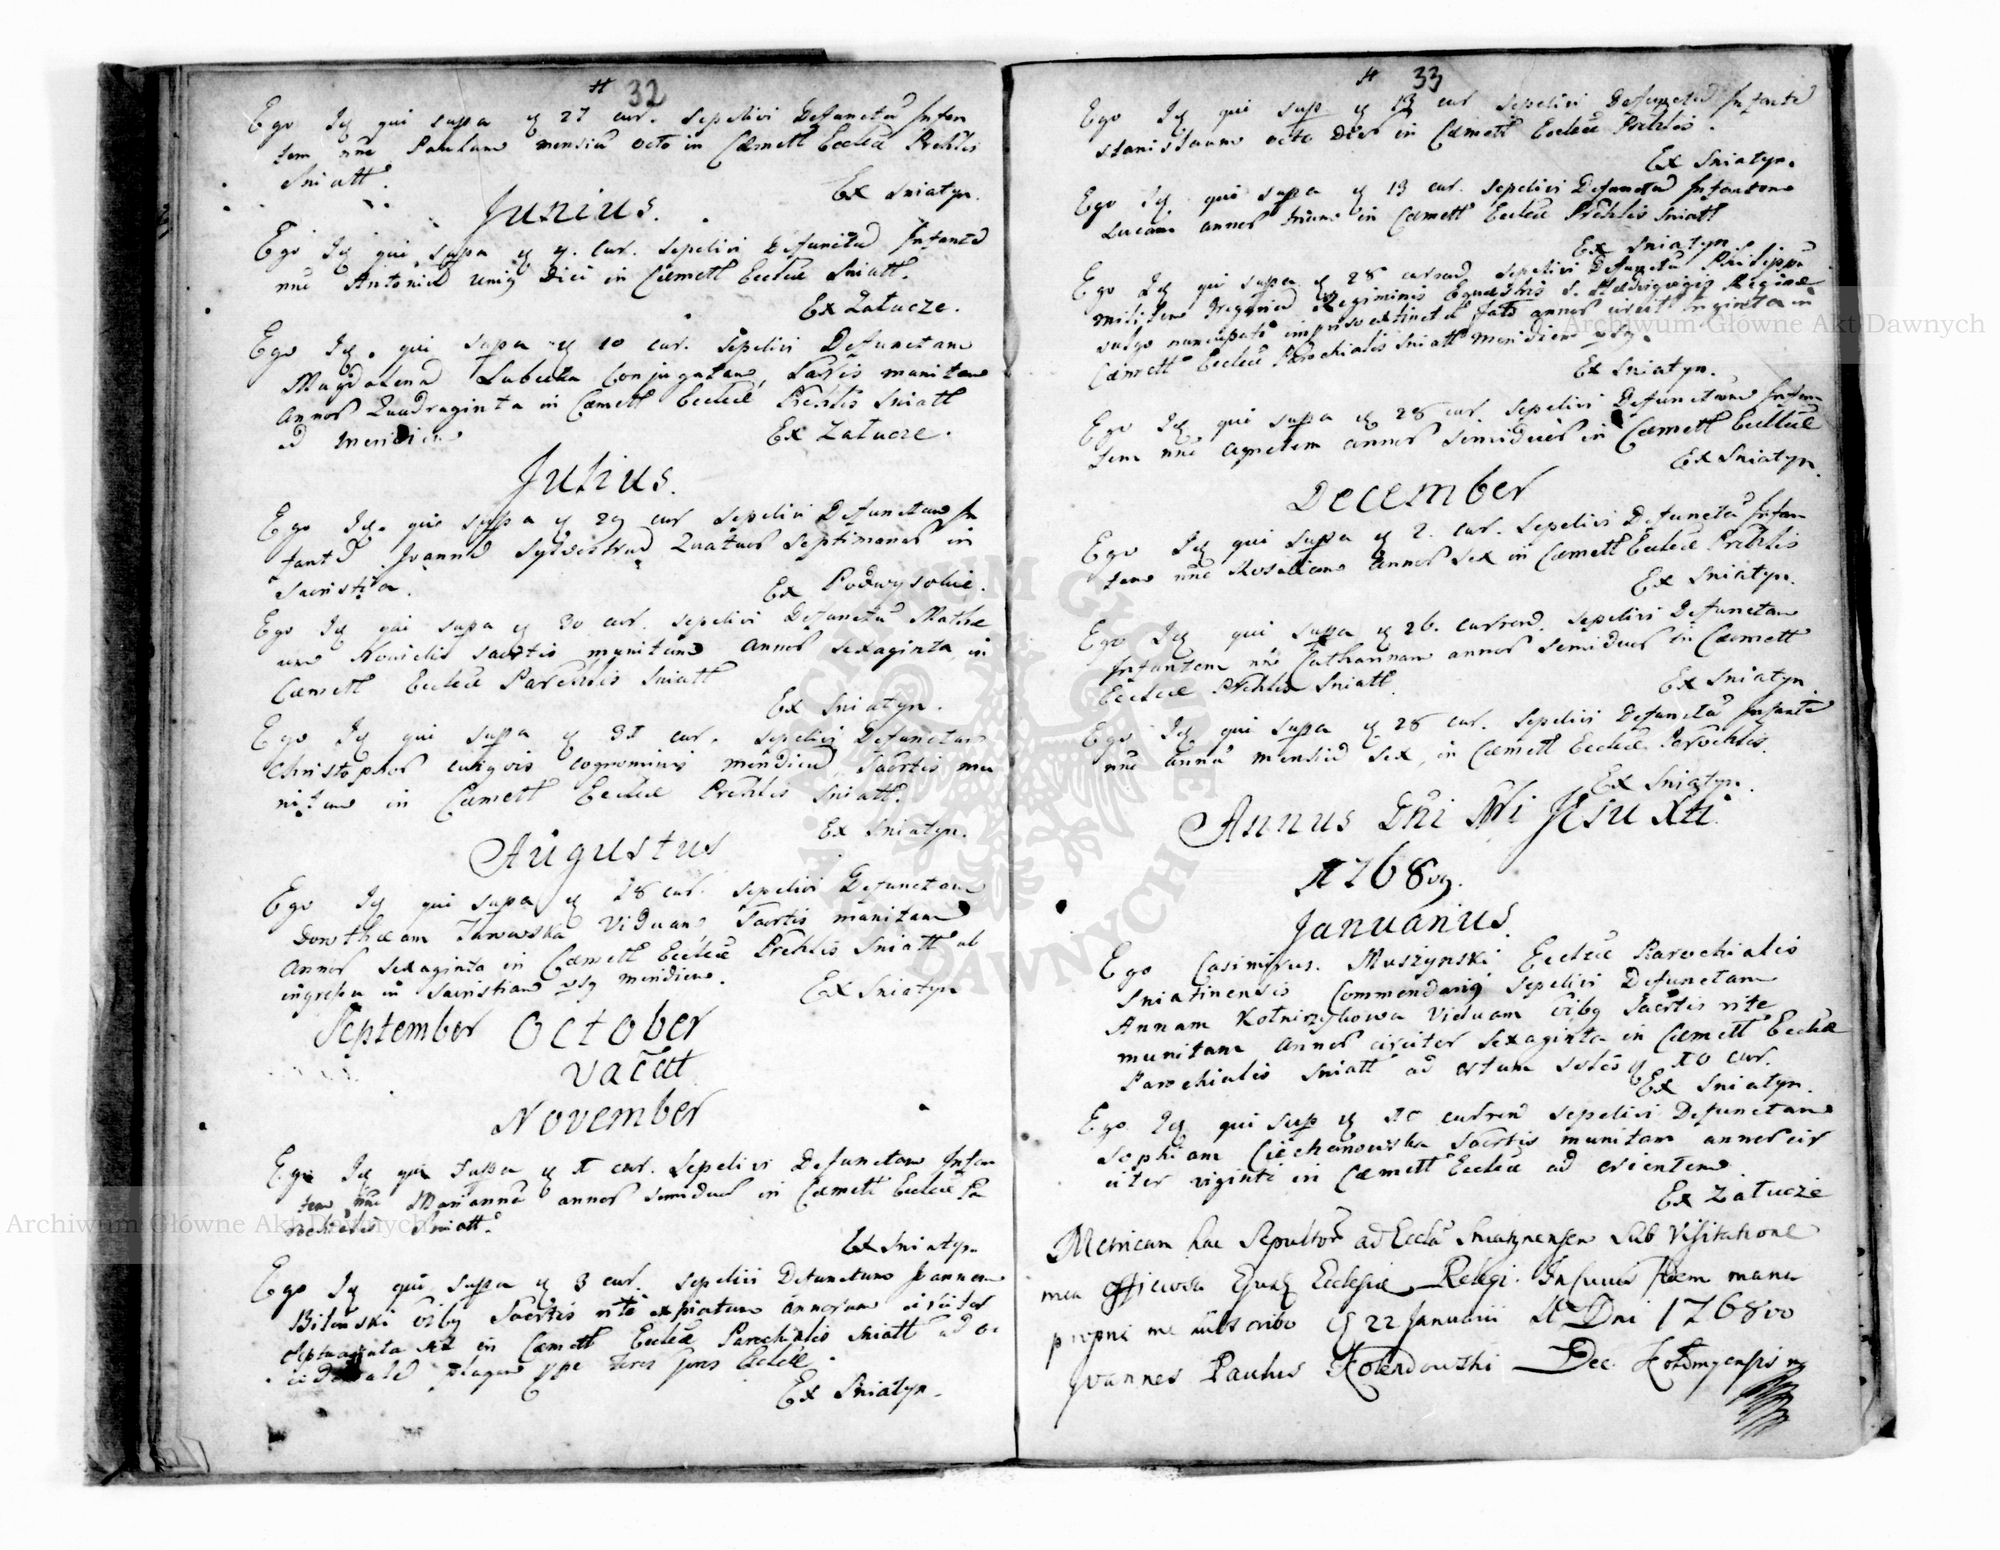 32
Ego Idem qui supra d 27 cur. sepelivi Defunctū Infan
tem nñe Paulum mensiū octo in Cæmett Eccleæ Prchlis
Sniatt.
Ex Sniatyn.
Junius.
Ego Id qui supra d 4. cur. sepelivi Defunctū Infantē
nñe Antoniū unig Diei in Cæmett Eccleæ Sniatt.
Ex Załucze.
Ego Id. qui supra d 10 cur. sepelivi Defunctam
Magdalenā Conjugatam, Sacris munitam
annor Quadraginta in Cæmett Eccleæ Prchlis Sniatt
ad meridiem
Ex Załucze.
Julius.
Ego Id. qui supra d 29 cur sepelivi Defunctum In
fantē Joannē Sylvestrum Quatuor Septimanar in
Sacristia.
Ex Podwysokie.
Ego Id qui supra d 30 cur. sepelivi Defunctū Mathæ
um sacrtis munitum annor sexaginta in
Cæmett Eccleæ Parchlis Sniatt
Ex Sniatyn.
Ego Id qui supra d 31 cur. sepelivi Defunctum
Christophor cognominis mendicū Sacrtis mu
nitum in Cæmett Eccleæ Prchlis Sniatt.
Ex Sniatyn.
Augustus
Ego Id qui supra d 28 cur. sepelivi Defunctam
Dorotheam Viduam, Sacrtis munitam
annor sexaginta in Cæmett Eccleæ Prchlis Sniatt ab
ingressu in Sacristiam usq meridiem.
Ex Sniatyn
September October
vacat
November
Ego Id qui supra d 1 cur. sepelivi Defunctam Infan
tem nñe Mariannā annor semiduor in Cæmett Eccleæ Pa
rochialis Sniatt.
Ex Sniatyn
Ego Id qui supra d 3 cur. sepelivi Defunctum Joannem
Bilinski oibg Sacrtis rite expiatum annorum circiter
in Cæmett Eccleæ Parochialis Sniatt ad oc
plagam fores Eccleæ.
Ex Sniatyn.
33
Ego Id qui sup d 13 cur sepelivi Defunctū Infantē
Stanislaum octo Dier in Cæmett Eccleæ Prchlis.
Ex Sniatyn.
Ego Id qui supra d 13 cur. sepelivi Defunctū Infantem
Lucam annor trium in Cæmett Eccleæ Prchlis Sniatt
Ex Sniatyn
Ego Id qui supra d 28 currend sepelivi Defunctū Philippū
militem Regiminis Equestris S. Reginæ
vulgo nuncupati extinctū fato annor circit triginta in
Cæmett Eccleæ Parochialis Sniatt meridiem usq.
Ex Sniatyn.
Ego Id qui supra d 28 cur sepelivi Defunctam Infan
tem nñe Agnetem annor semiduor in Cæmett Eccleæ
Ex Sniatyn.
December
Ego Id qui supra d 2. cur. sepelivi Defunctā Infan
tem nñe Rosaliam annor sex in Cæmett Eccleæ Prchlis
Ex Sniatyn.
Ego Id qui supra d 26. currend. sepelivi Defunctam
Infantem nñe Catharinam annor semiduor in Cæmett
Eccleæ Prchlis Sniatt.
Ex Sniatyn
Ego Id qui supra d 28 cur. sepelivi Defunctā Infantē
nñe Annā mensiū sex, in Cæmett Eccleæ Parochlis.
Ex Sniatyn.
Annus Dñi Nri Jesu Xti
1768vg.
Januarius.
Ego Casimirus Muszynski Eccleæ Parochialis
Sniatinensis Commendarig sepelivi Defunctam
Annam Viduam oibg Sacrtis rite
munitam annor circiter sexaginta in Cæmett Eccleæ
Parochialis Sniatt ad ortum solis d 10 cur.
Ex Sniatyn.
Ego Id qui sup d currend sepelivi Defunctam
Sophiam Ciechanowska Sacrtis munitam annor cir
citer viginti in Cæmett Eccleæ ad orientem.
Ex Załucze
Metricam hac Sepultor ad Eccla Sniatynensem Sub Visitatione
mea Officiosa Ejusd Ecclesiæ Relegi. In cujus fidem manu
propria me subscribo d 22 Januarii A Dni 1768vo
Joannes Paulus Kolendowski Dec. Kolomyensis
Archiwum Główne Akt Dawnych
Archiwum Główne Akt Dawnych
ARCHIWUM GŁÓWNE AKT DAWNYCH